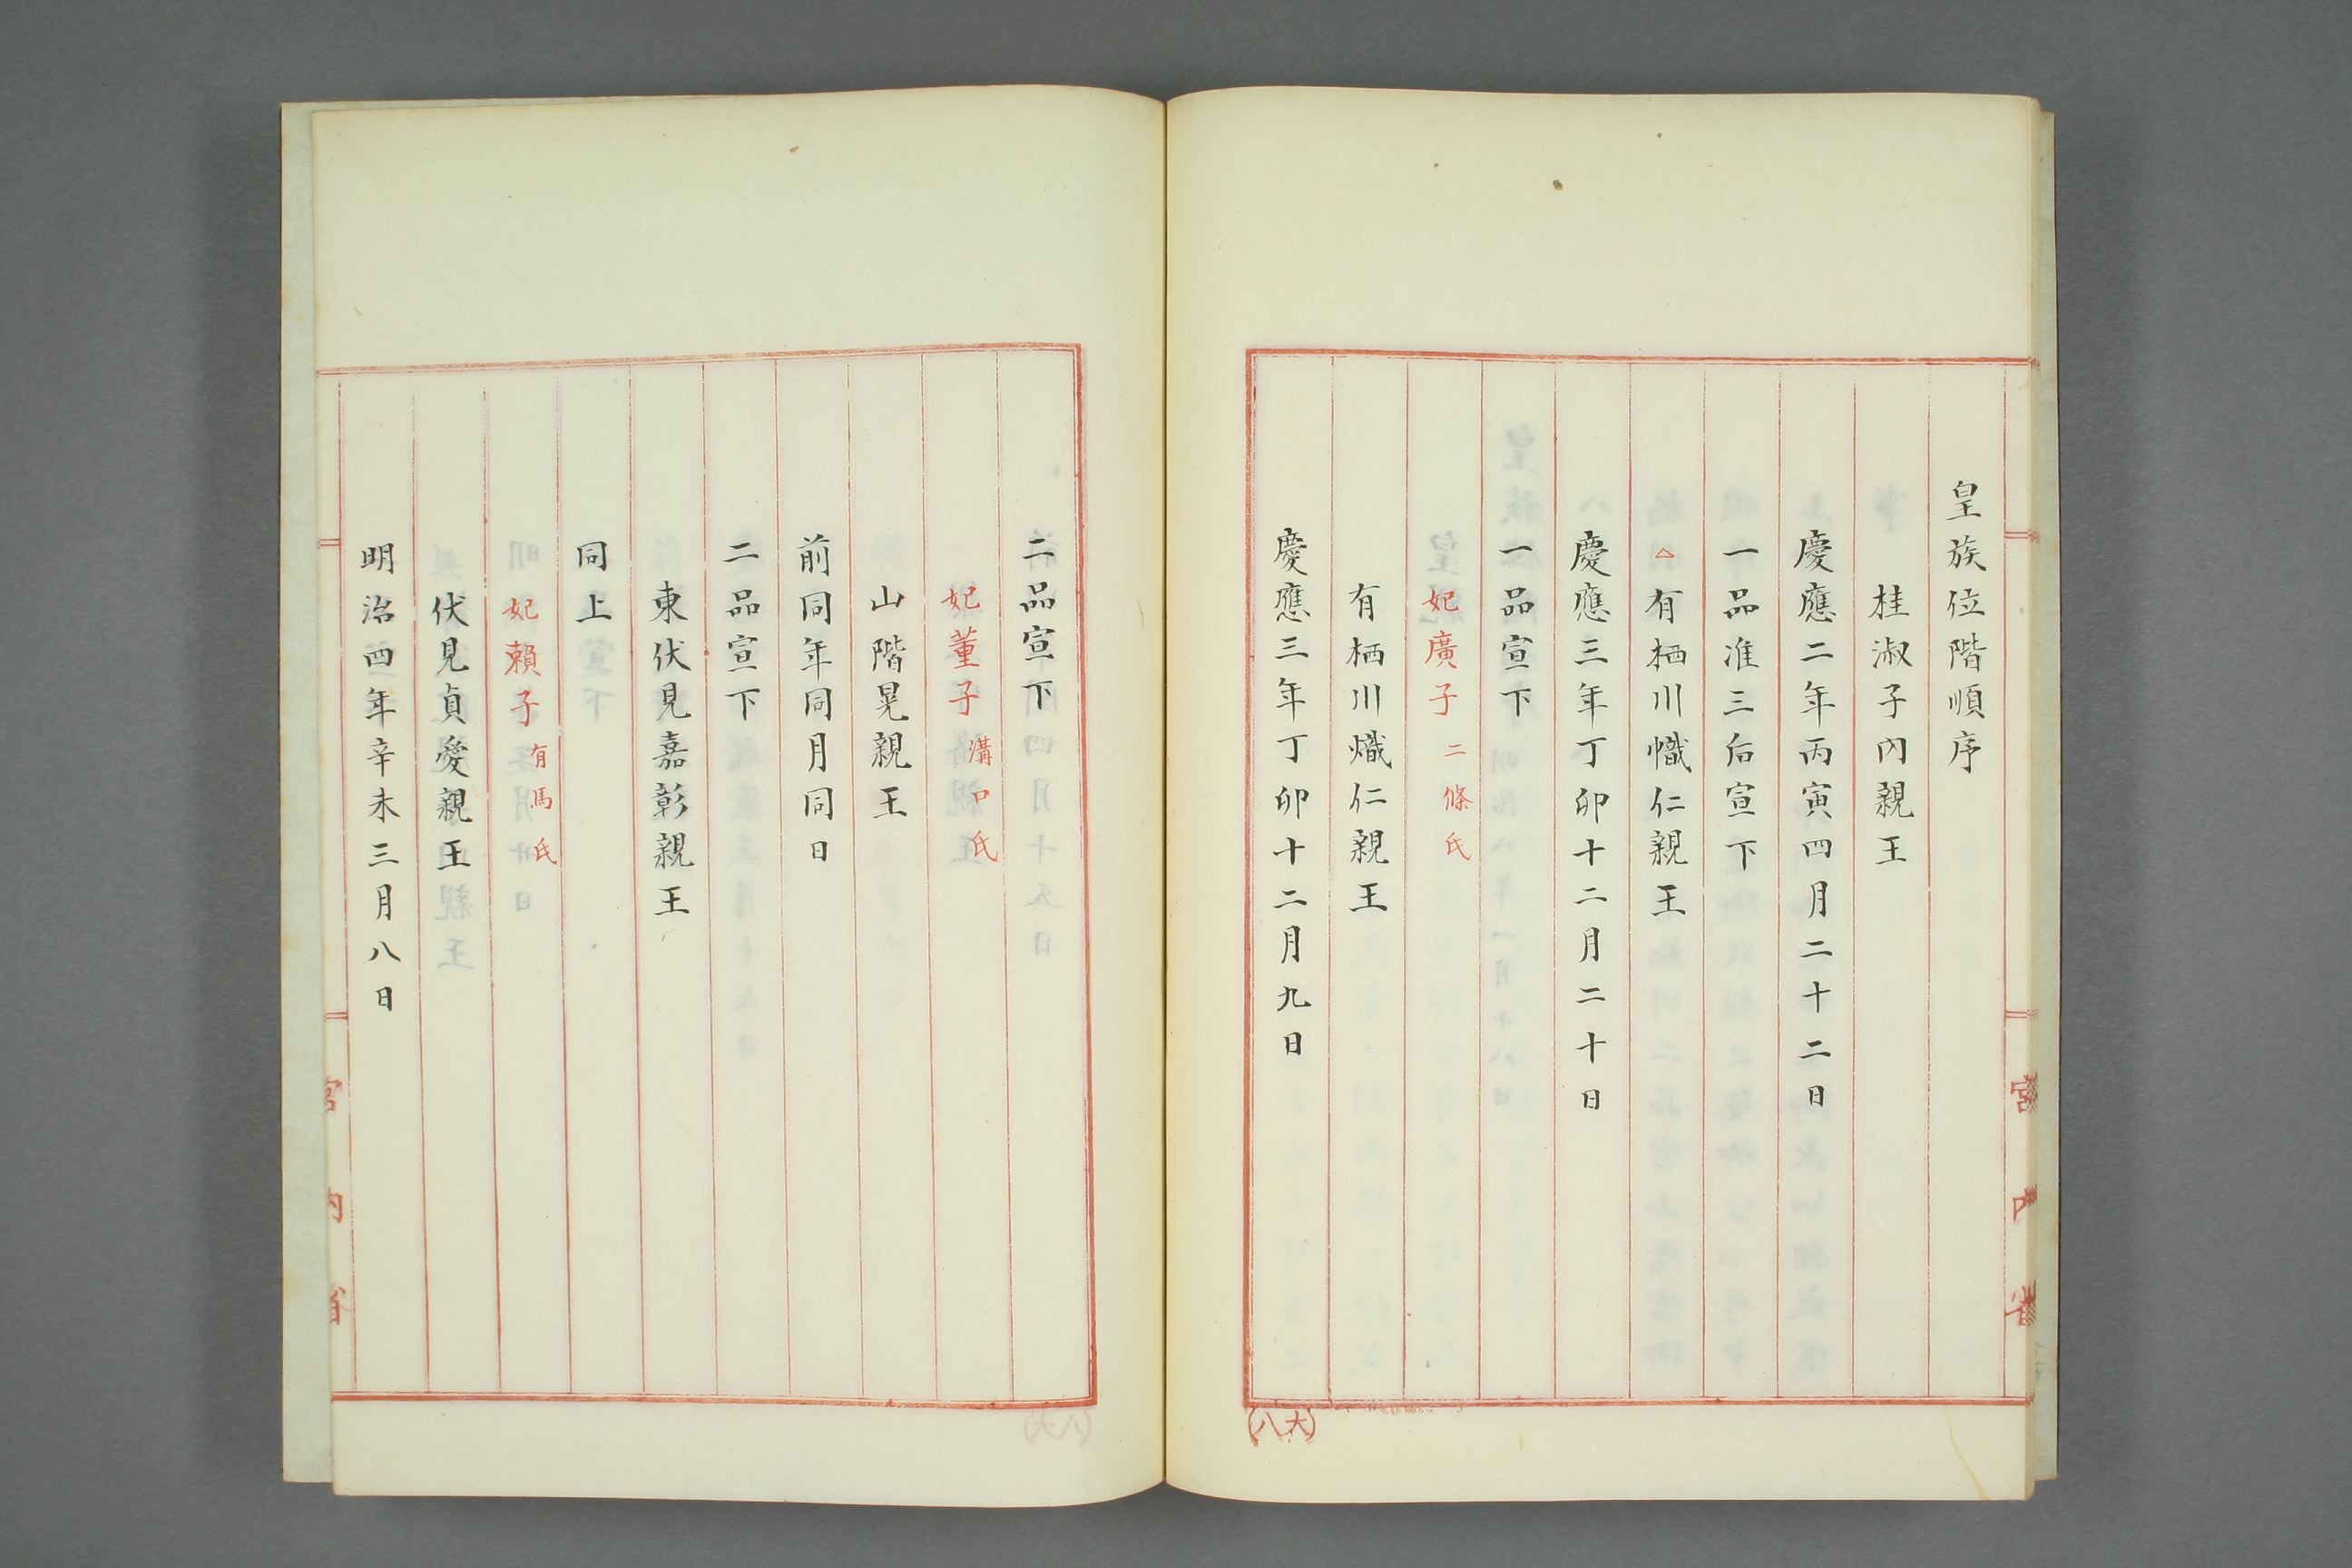 皇族位階順序
桂淑子内親王
慶應二年丙寅四月二十二日
一品准三后宣下
△有栖川幟仁親王
慶應三年丁卯十二月二十日
一品宣下
妃廣子 二條氏
有栖川熾仁親王
慶應三年丁卯十二月九日
宮内省
(八大)
二品宣下
妃董子 溝口氏
山階晃親王
前同年同月同日
二品宣下
東伏見嘉彰親王
同上
妃頼子 有馬氏
伏見貞愛親王
明治四年辛未三月八日
宮内省